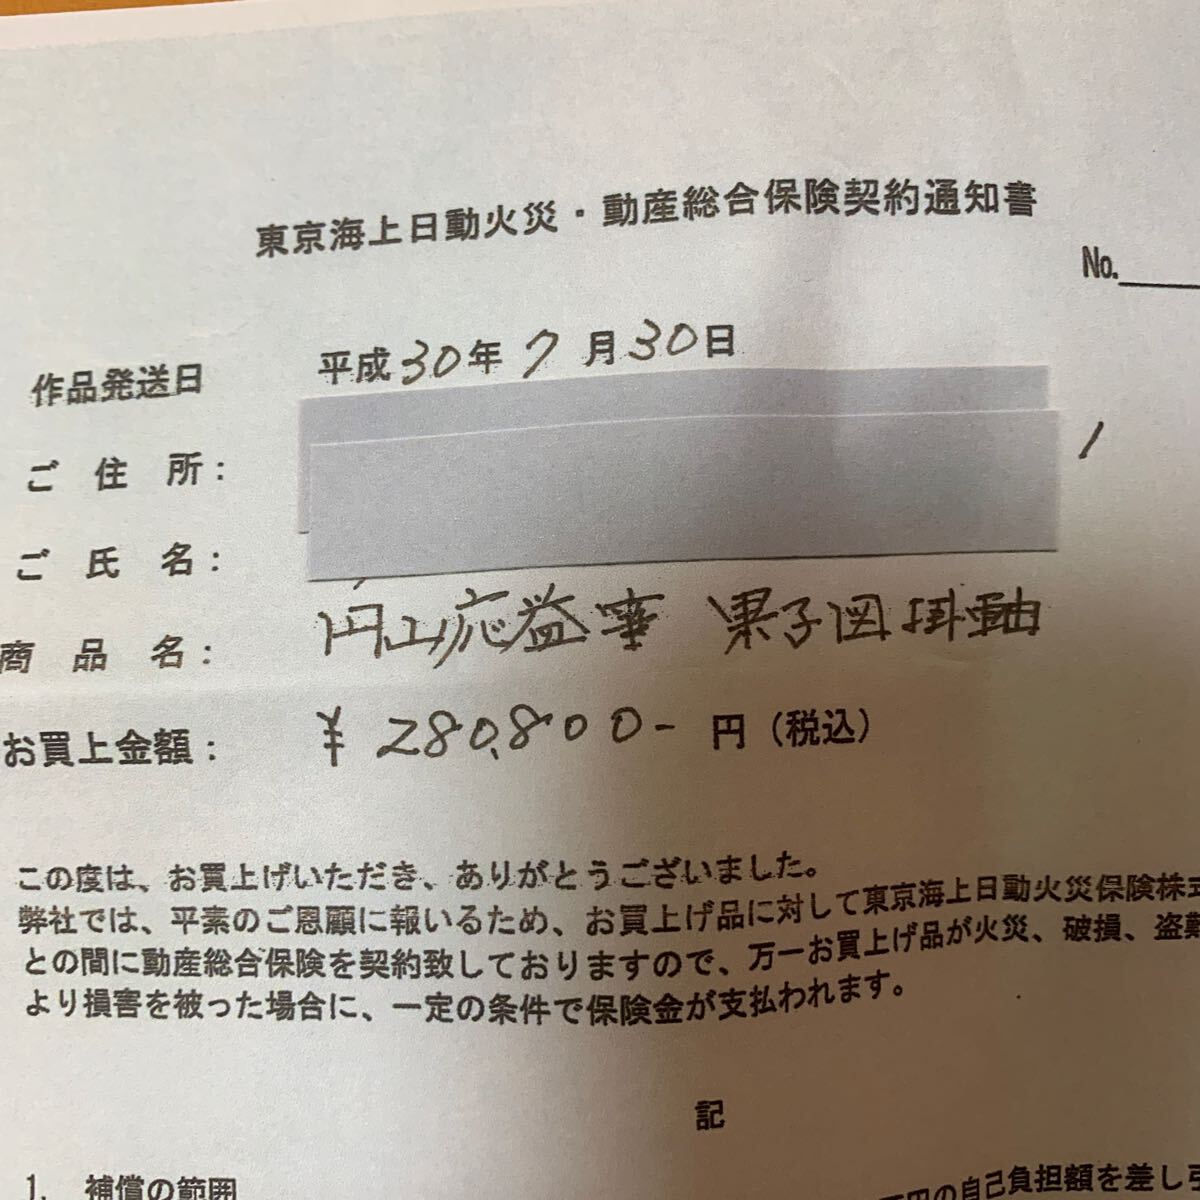 東京海上日動火災・動産総合保険契約通知書
No.
作品発送日 平成30年7月30日
ご住所: 1
ご氏名:
商品名: 円山応益筆 果子図掛軸
お買上金額: ¥280,800-円(税込)
この度は、お買上げいただき、ありがとうございました。
弊社では、平素のご恩顧に報いるため、お買上げ品に対して東京海上日動火災保険株式
との間に動産総合保険を契約致しておりますので、万一お買上げ品が火災、破損、盗難
より損害を被った場合に、一定の条件で保険金が支払われます。
記
1. 補償の範囲
円の自己負担額を差し引